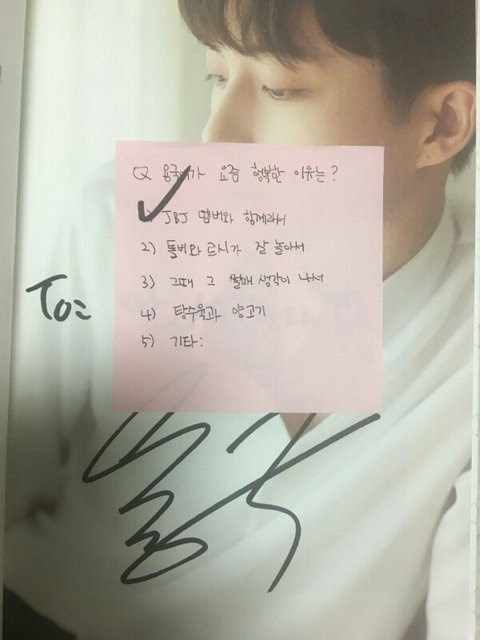 Q 용국이가 요즘 행복한 이유는?
1) JBJ 멤버와 함께라서
2) 톨비와 르시가 잘 놀아서
3) 그때 그 썰매 생각이 나서
4) 탕수육과 양고기
5) 기타:
To:
용국